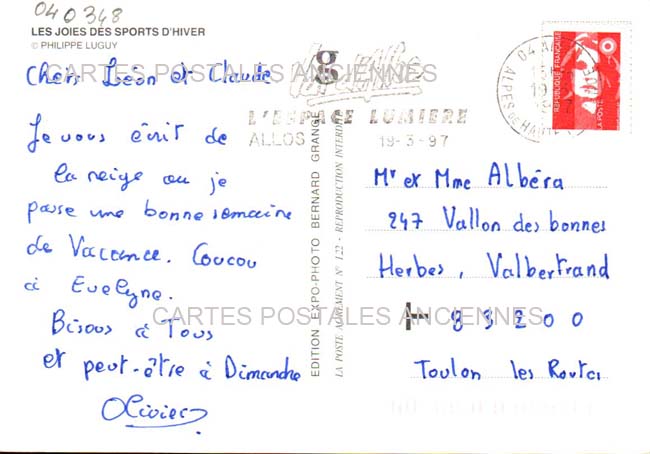 040348
LES JOIES DES SPORTS D'HIVER
© PHILIPPE LUGUY
Chers Léon et Claude
Je vous écrit de
la neige ou je
passe une bonne semaine
de Vaccance. Coucou
à Evelyne.
Bisous à Tous
et peut-être à Dimanche
Olivier
CARTES POSTALES ANCIENNES
L'ESPACE LUMIERE
ALLOS 19-3-97
EDITION EXPO-PHOTO BERNARD GRANGE
LA POSTE AGREMENT N° 122 - REPRODUCTION INTERDITE
04 ALLOS
ALPES DE HAUTE
REPUBLIQUE FRANÇAISE
LA POSTE
Mr et Mme Albéra
247 Vallon des bonnes
Herbes, Valbertrand
83200
Toulon les Routes
CARTES POSTALES ANCIENNES